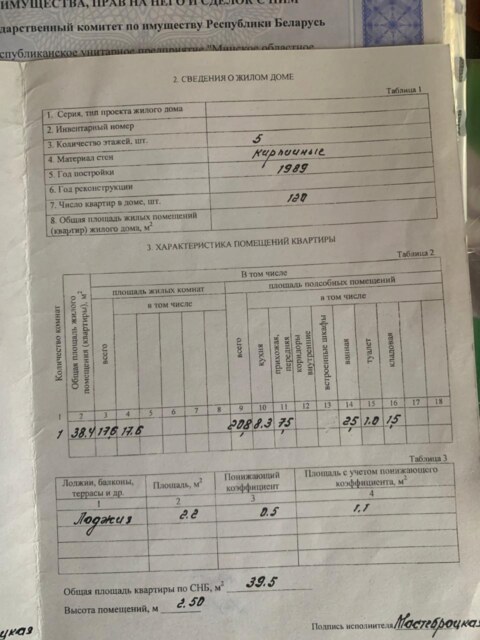 ИМУЩЕСТВА, ПРАВ НА НЕГО И СДЕЛОК С НИМ
дарственный комитет по имуществу Республики Беларусь
спубликанское унитарное предприятие "Минское областное
2. СВЕДЕНИЯ О ЖИЛОМ ДОМЕ
Таблица 1
1. Серия, тип проекта жилого дома
2. Инвентарный номер
3. Количество этажей, шт. 5
4. Материал стен кирпичные
5. Год постройки 1989
6. Год реконструкции
7. Число квартир в доме, шт. 120
8. Общая площадь жилых помещений
(квартир) жилого дома, м²
3. ХАРАКТЕРИСТИКА ПОМЕЩЕНИЙ КВАРТИРЫ
Таблица 2
Количество комнат
Общая площадь жилого
помещения (квартиры), м²
В том числе
площадь жилых комнат
площадь подсобных помещений
всего
в том числе
всего
в том числе
кухня
прихожая,
передняя
коридоры
внутренние
встроенные шкафы
ванная
туалет
кладовая
1 2 3 4 5 6 7 8 9 10 11 12 13 14 15 16 17 18
1 38.4 17.6 17.6 20.8 8.3 7.5 2.5 1.0 1.5
Таблица 3
Лоджии, балконы,
террасы и др.
Площадь, м²
Понижающий
коэффициент
Площадь с учетом понижающего
коэффициента, м²
1 2 3 4
Лоджия 2.2 0.5 1.1
Общая площадь квартиры по СНБ, м² 39.5
Высота помещений, м 2.50
Подпись исполнителя